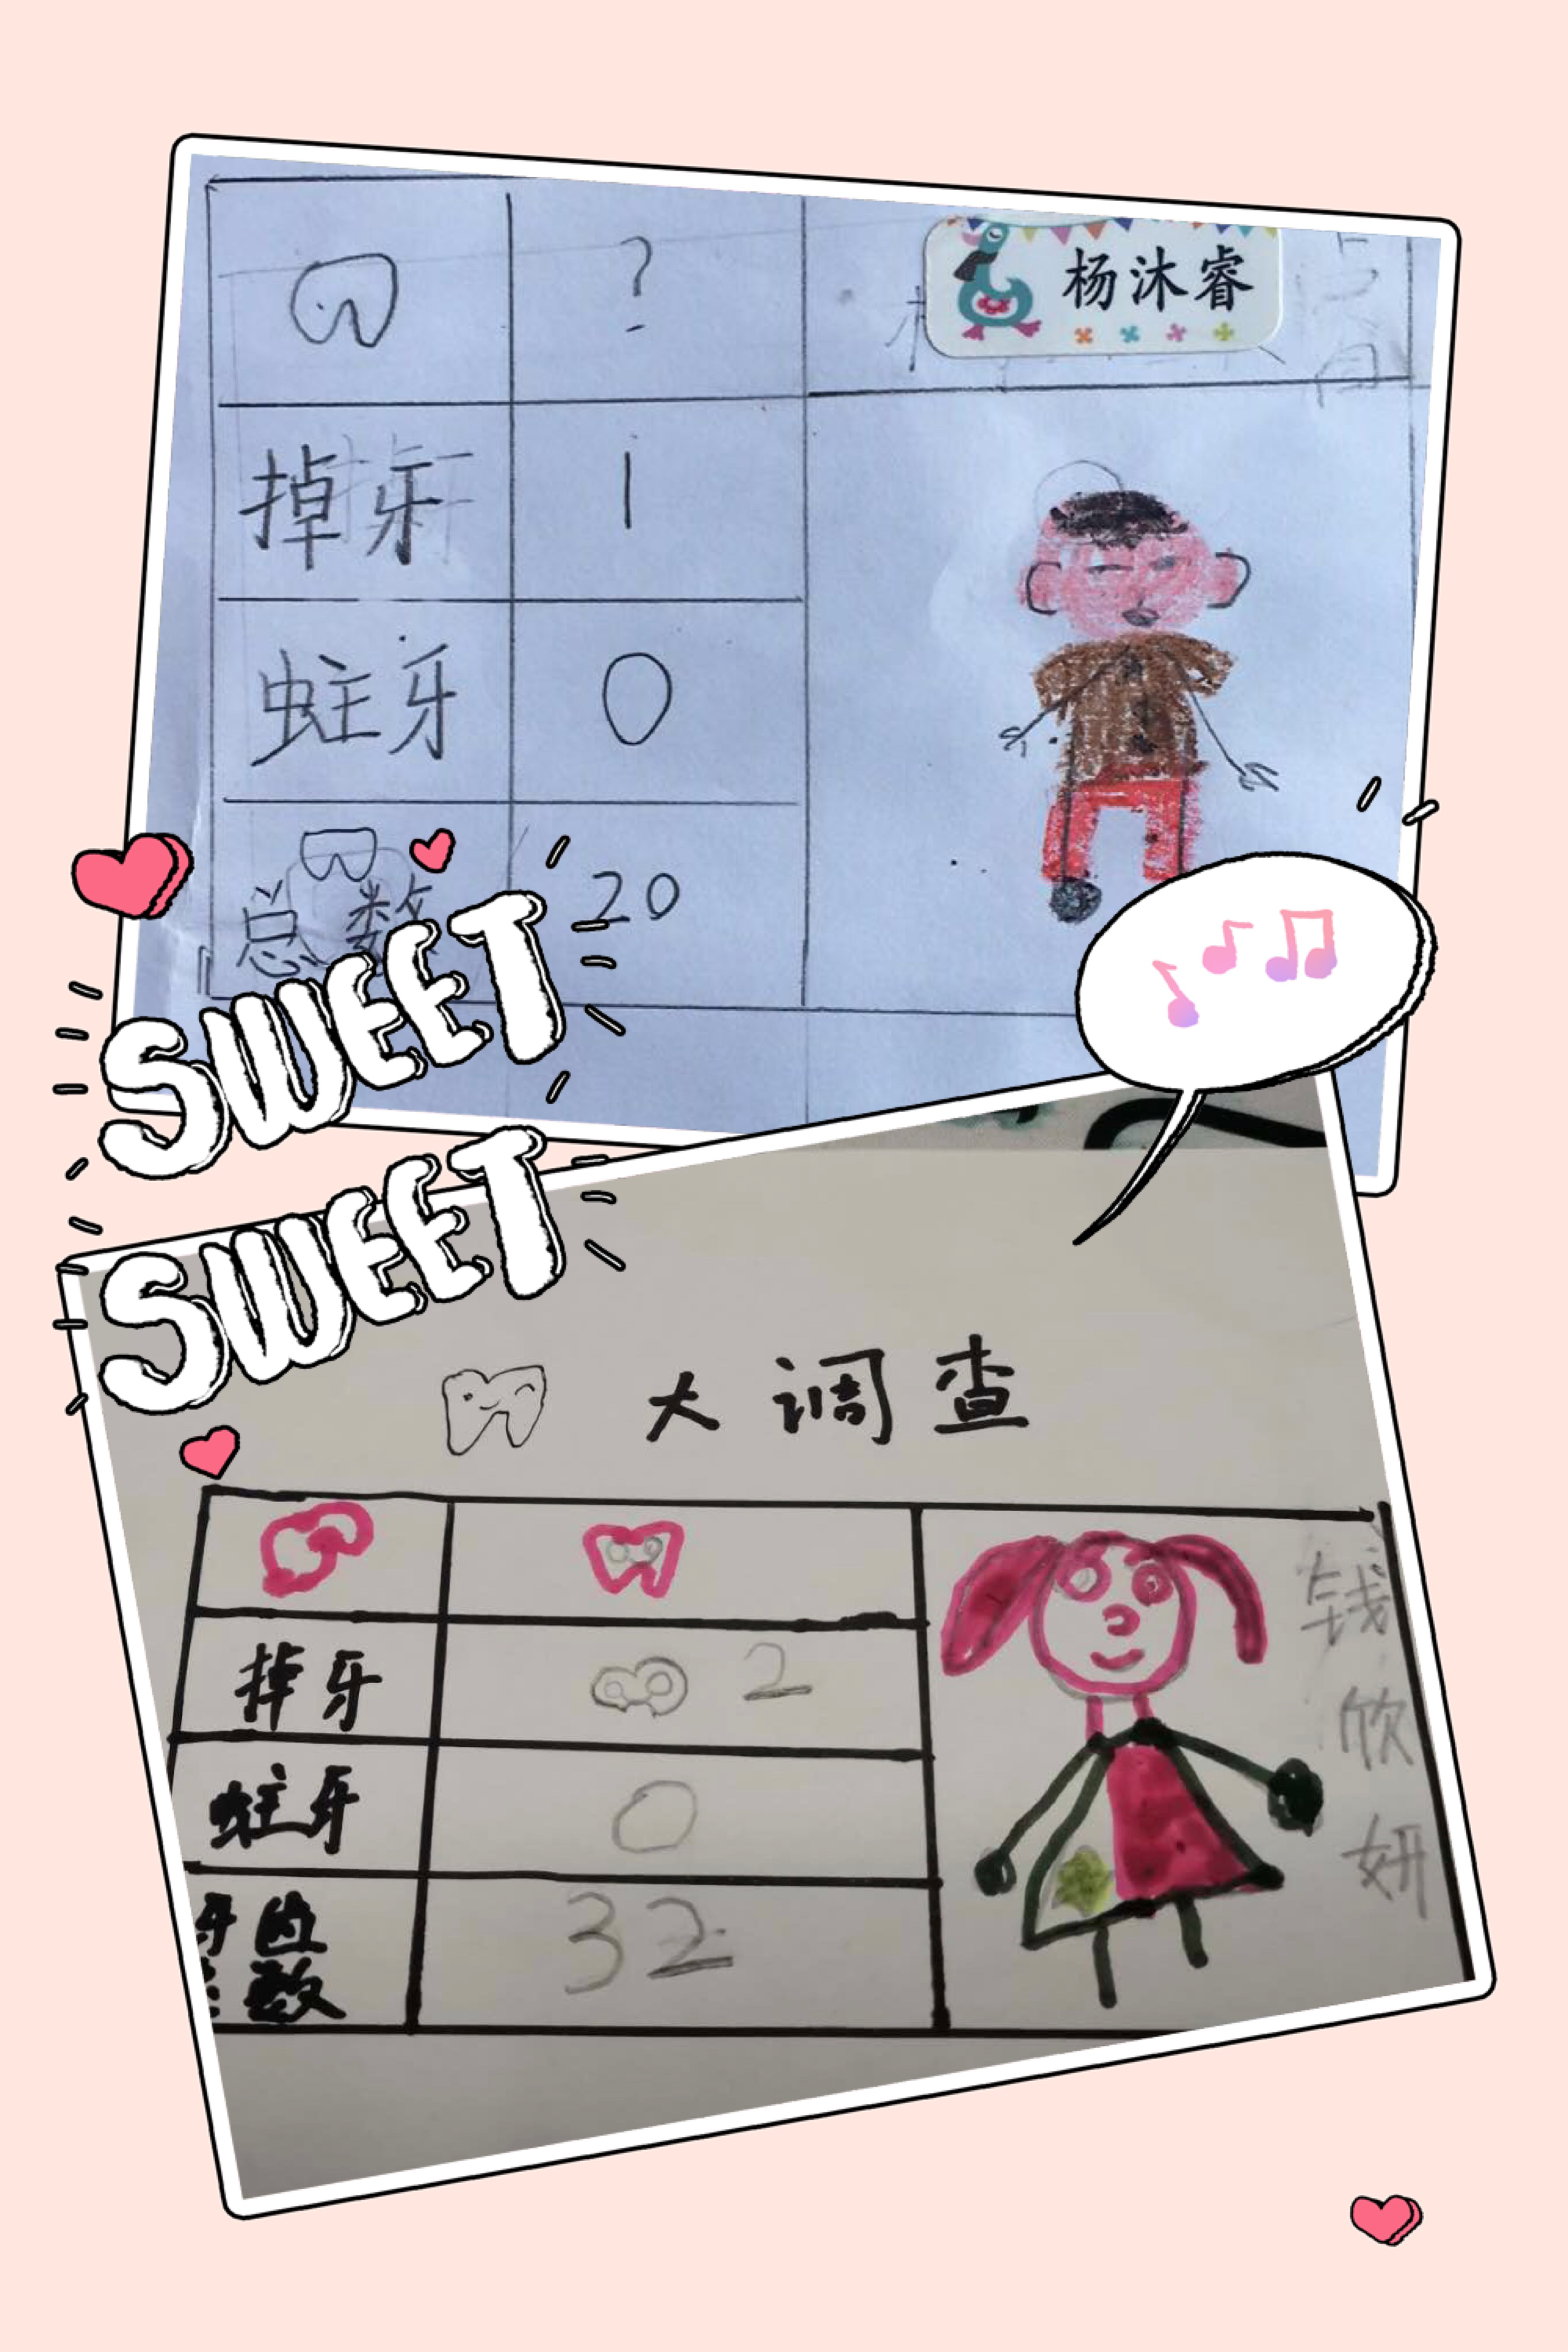 ?
杨沐睿
掉牙 1
蛀牙 0
总数 20
SWEET
SWEET
大调查
掉牙 2
蛀牙 0
牙齿
数 32
钱欣妍